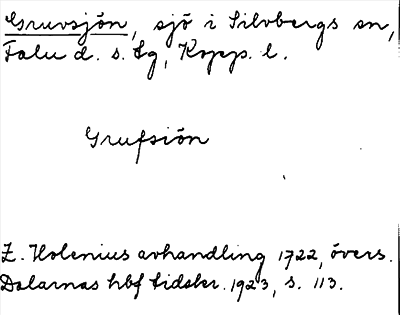 Gruvsjön, sjö i Silvbergs sn,
Falu d. s. lg, Kopp. l.
Grufsiön
Z. Holenius avhandling 1722, övers.
Dalarnas hbf tidskr. 1923, s. 113.